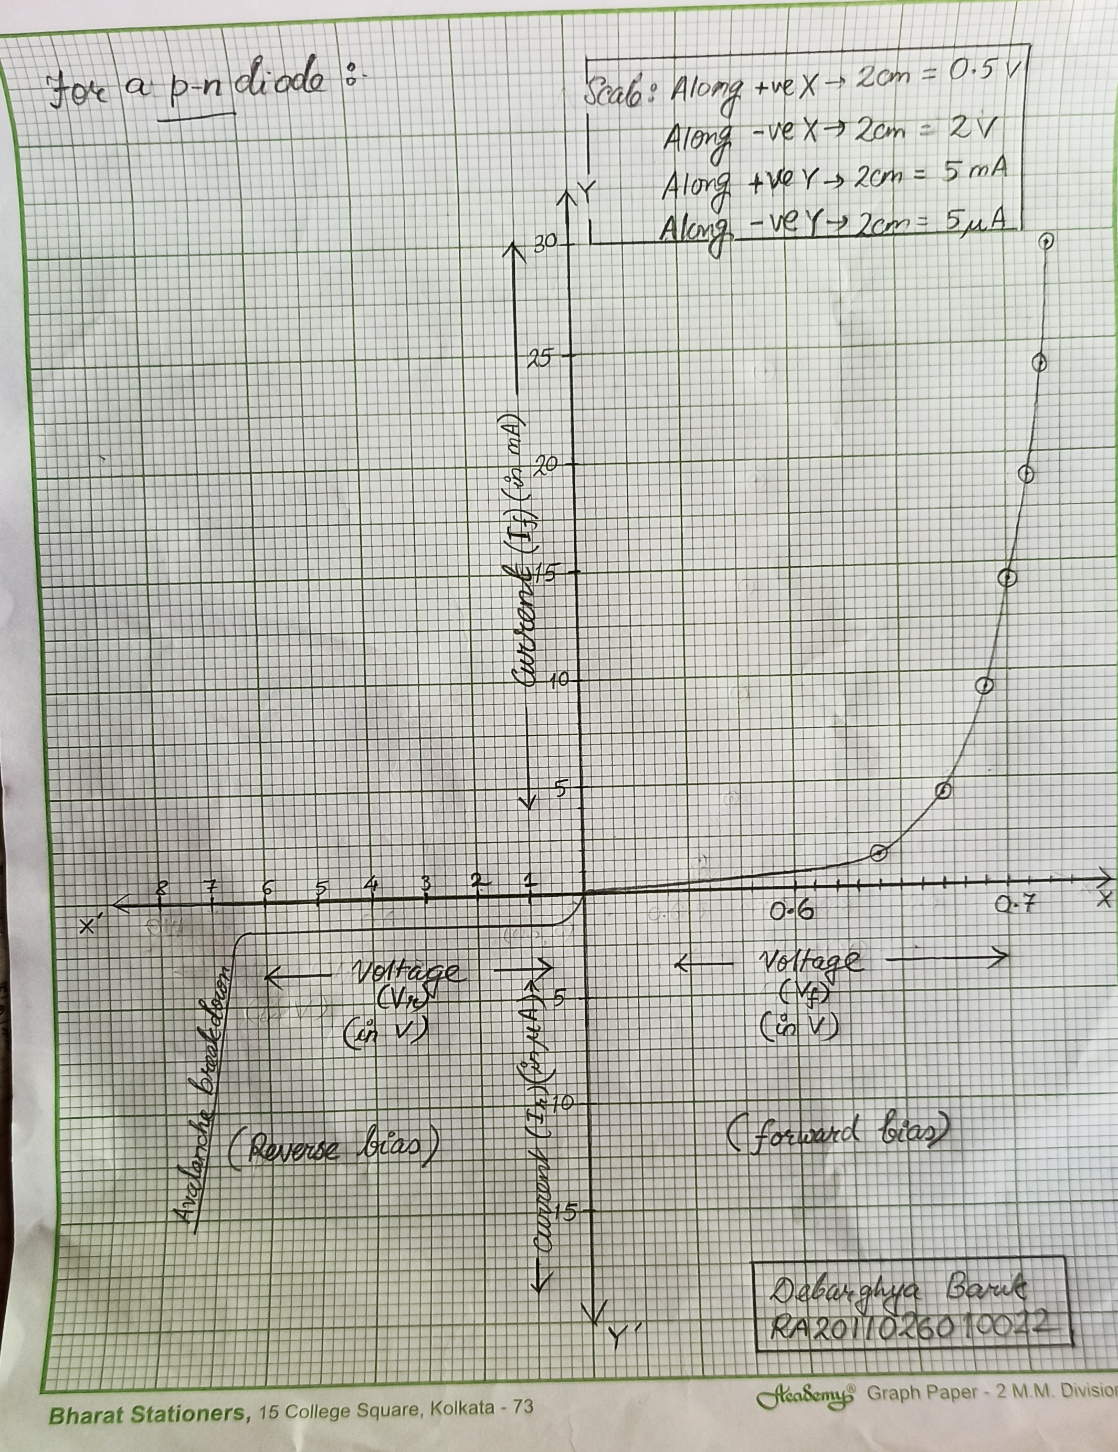 For a p-n diode :-
Scale: Along +ve X → 2cm = 0.5 V
Along -ve X → 2cm = 2 V
Along +ve Y → 2cm = 5 mA
Along -ve Y → 2cm = 5 μA
Y
30
25
20
15
10
5
Current (If) (in mA)
8 7 6 5 4 3 2 1
X'
0.6 0.7
X
Voltage
(Vr)
(in V)
Voltage
(Vf)
(in V)
5
10
15
Current (Ir) (in μA)
Avalanche breakdown
(Reverse bias)
(forward bias)
Y'
Debarghya Barik
RA2011026010022
Bharat Stationers, 15 College Square, Kolkata - 73
Academy® Graph Paper - 2 M.M. Division